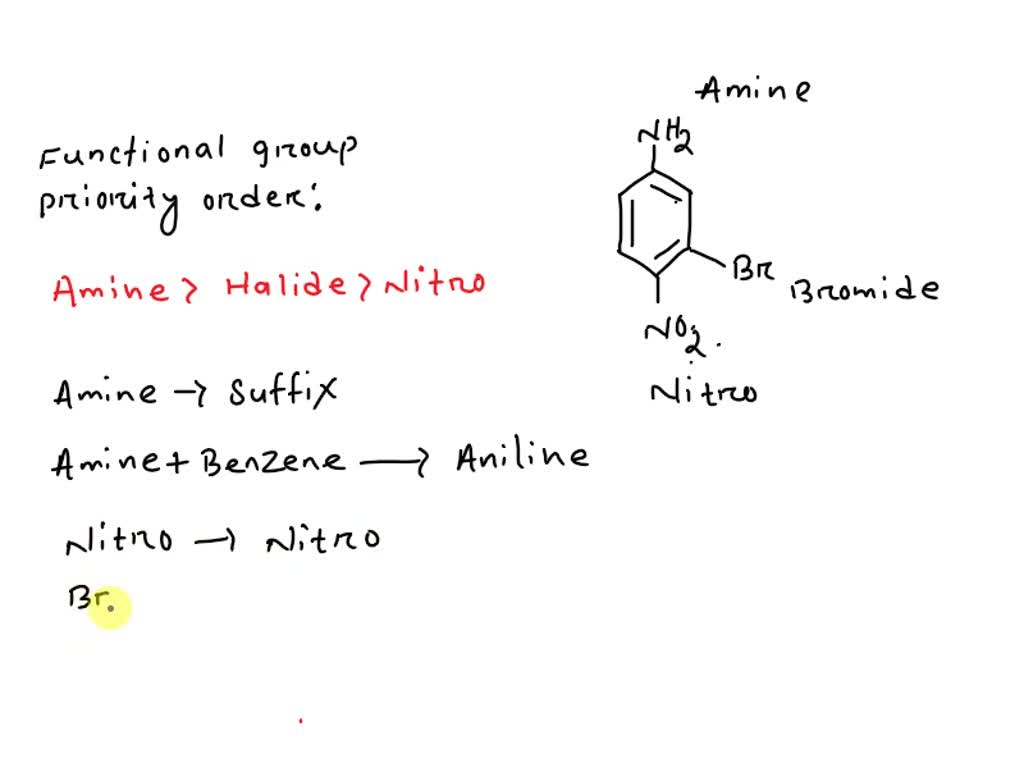 Functional group
priority order:
Amine > Halide > Nitro
Amine → Suffix
Amine + Benzene → Aniline
Nitro → Nitro
Br
Amine
NH2
Br
Bromide
NO2
Nitro